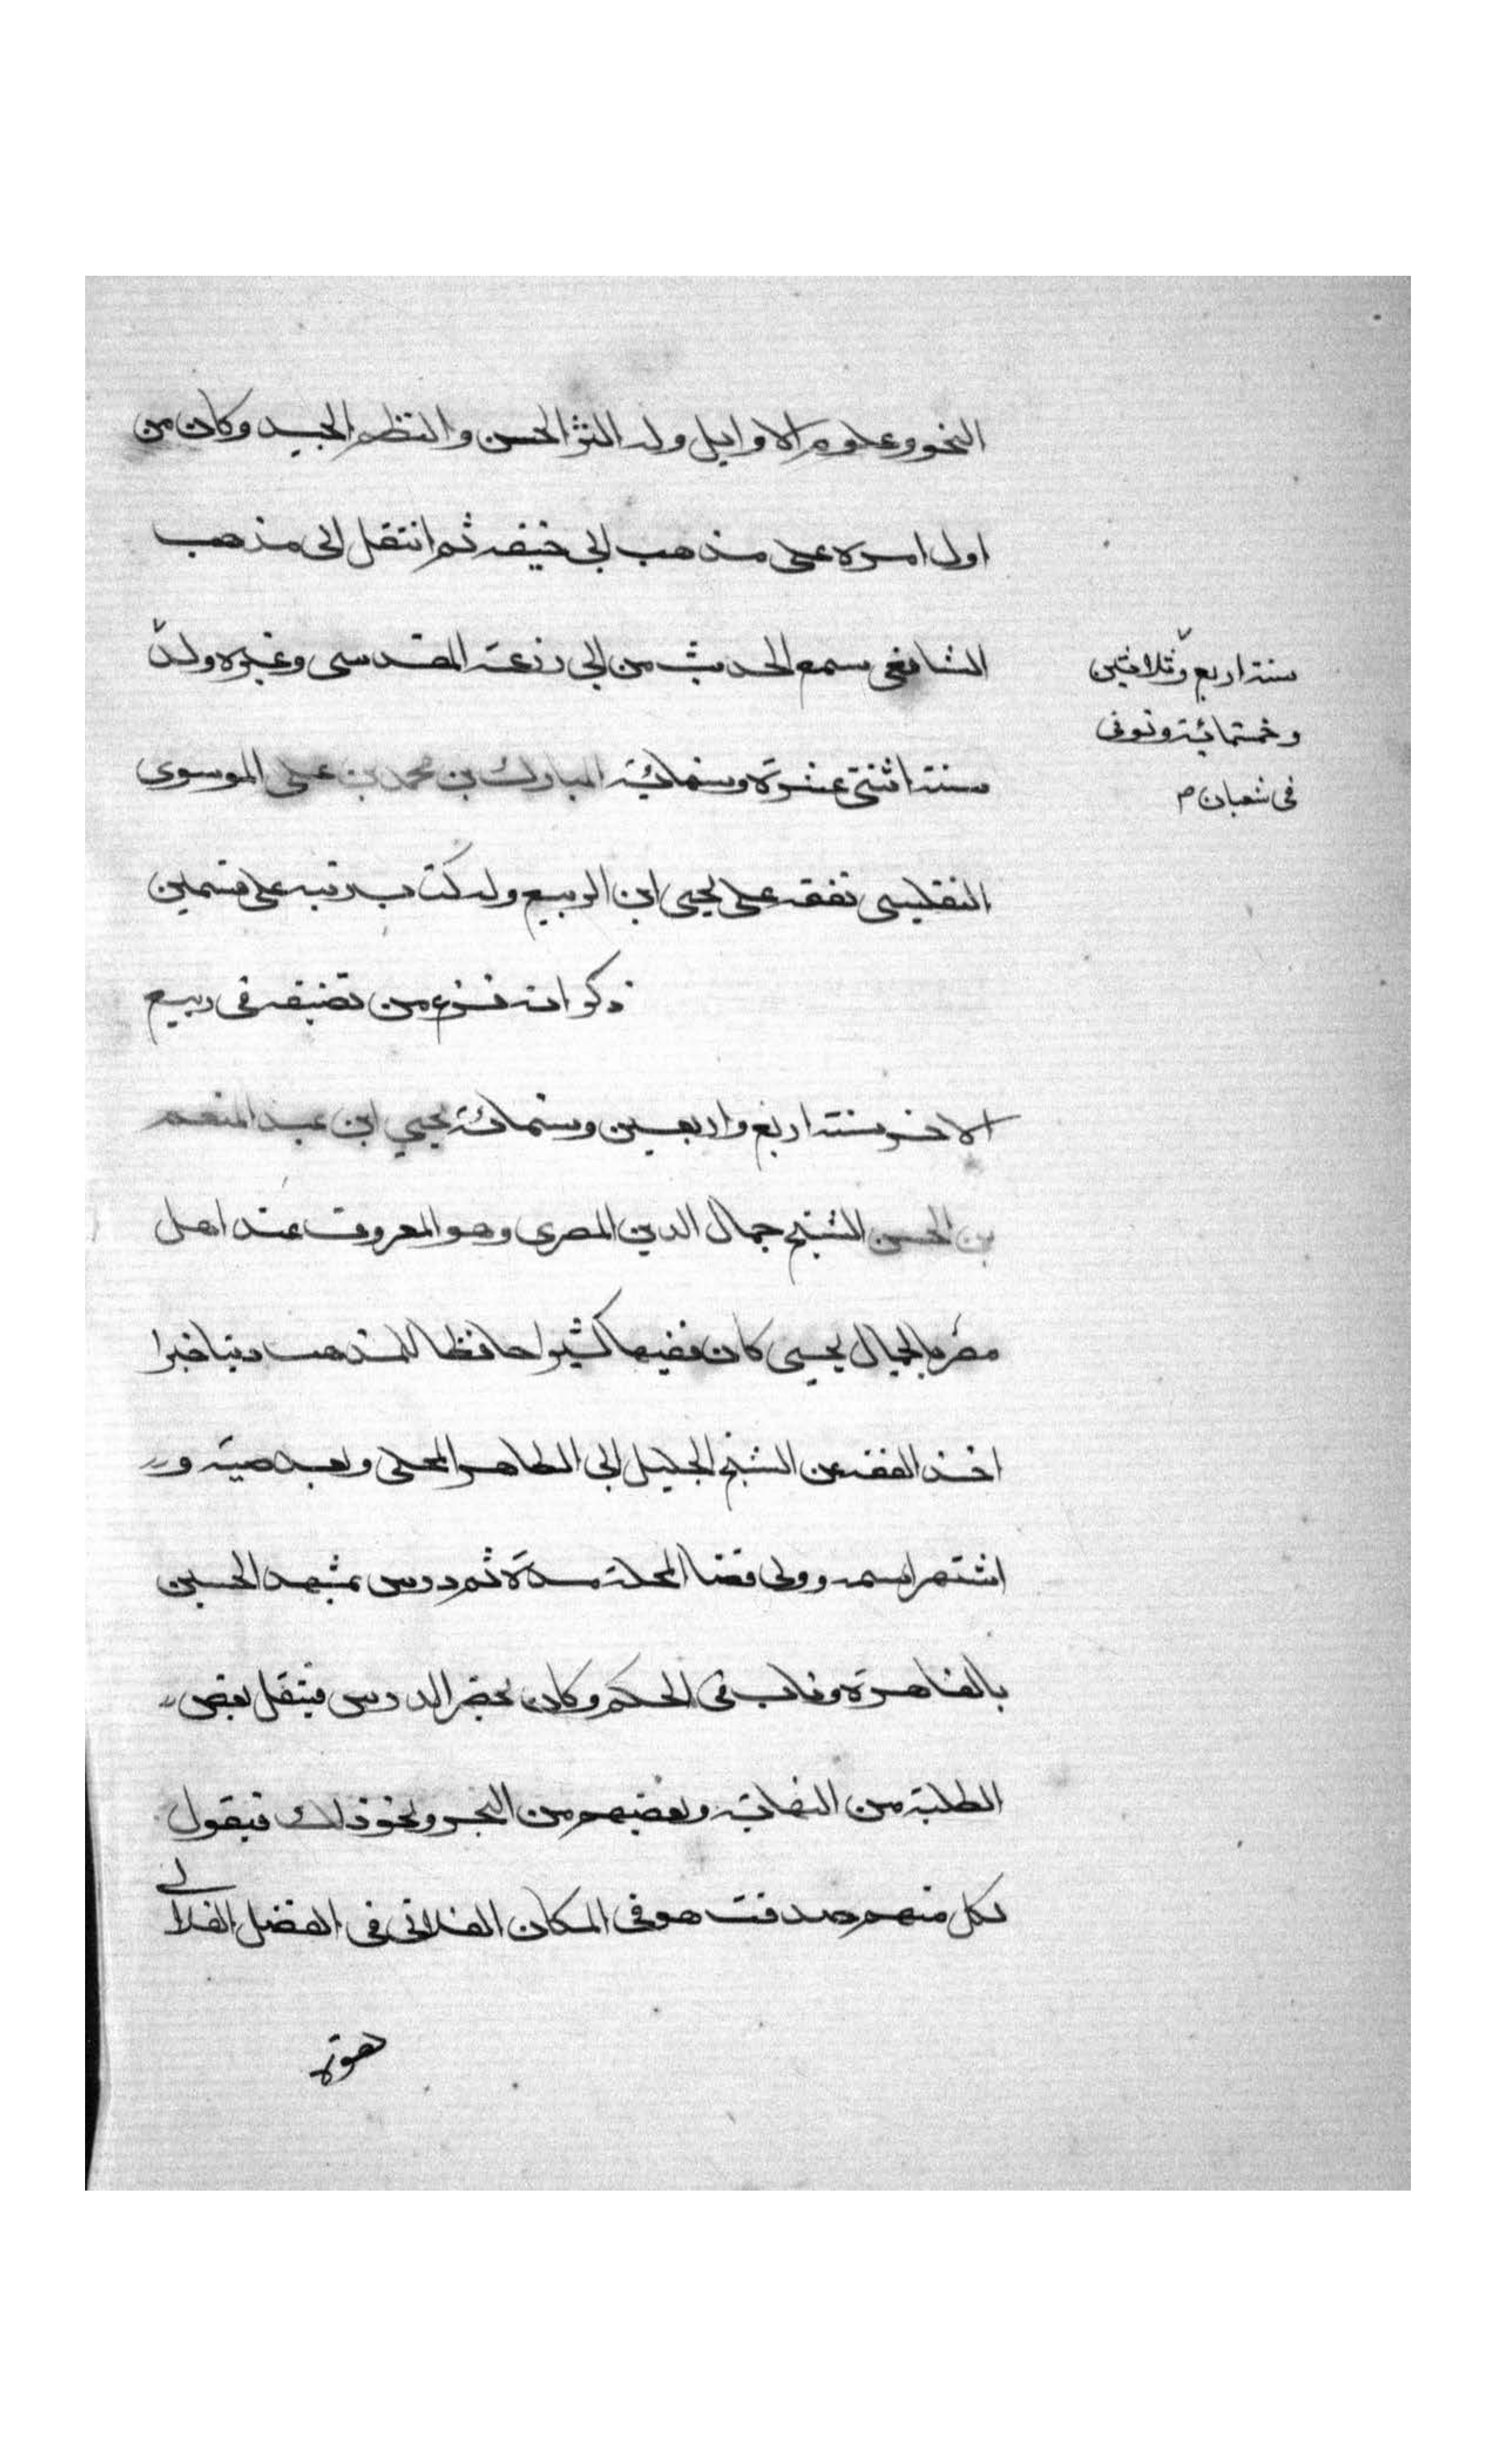 النحو وعلوم الاوايل وله النثر الحسن والنظم الجيد وكان من
اول امره على مذهب ابى حنيفه ثم انتقل الى مذهب
الشافعى سمع الحديث من ابى زرعة المقدسى وغيره ولد
سنة اربع وثلاثين
وخمسمائة وتوفى
فى شعبان م
سنة اثنتى عشرة وستمائة المبارك بن محمد بن على الموسوى
التفليسى تفقه على يحيى ابن الربيع وله كتاب رتبه على قسمين
ذكر انه فرغ من تصنيفه فى ربيع
الاخر سنة اربع واربعين وستمائة يحيى ابن عبد المنعم
بن الحسن الشيخ جمال الدين المصرى وهو المعروف عند اهل
مصر بالجمال يحيى كان فقيها كثيرا حافظا للمذهب دينا خيرا
اخذ الفقه عن الشيخ الجليل ابى الطاهر المحلى وبعد صيته و
اشتهر اسمه وولى قضا المحلة مدة ثم درس بمشهد الحسين
بالقاهرة وناب فى الحكم وكان يحضر الدرس فينقل بعض
الطلبة من النهاية وبعضهم من البحر ونحو ذلك فيقول
لكل منهم صدقت هو فى المكان الفلانى فى الفصل الفلانى